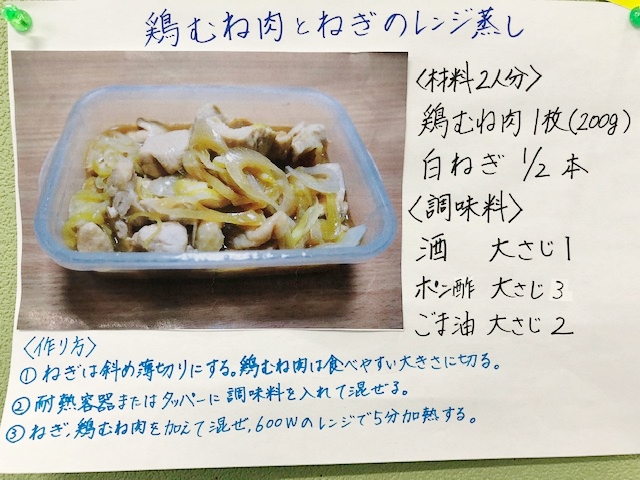 鶏むね肉とねぎのレンジ蒸し
〈材料2人分〉
鶏むね肉 1枚(200g)
白ねぎ 1/2 本
〈調味料〉
酒 大さじ1
ポン酢 大さじ3
ごま油 大さじ2
〈作り方〉
①ねぎは斜め薄切りにする。鶏むね肉は食べやすい大きさに切る。
②耐熱容器またはタッパーに調味料を入れて混ぜる。
③ねぎ,鶏むね肉を加えて混ぜ,600Wのレンジで5分加熱する。